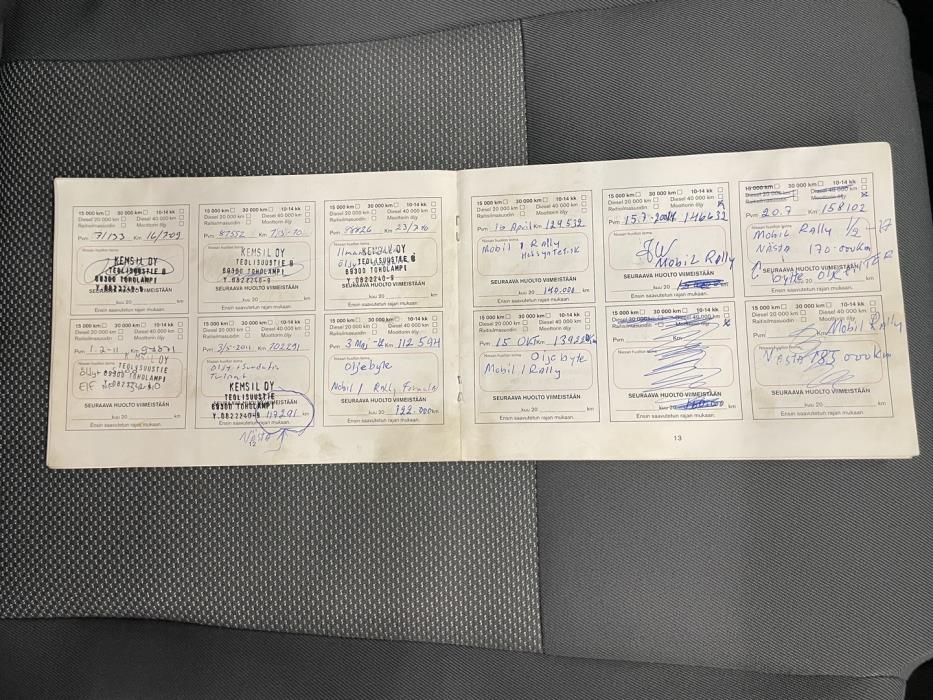 15 000 km 30 000 km 10-14 kk
Diesel 20 000 km Diesel 40 000 km
Raitisilmasuodin Moottorin öljy
Pvm Km
Nissan huollon leima
KEMSIL OY
TEOLISUUSTIE 8
69300 TOHOLAMPI
Y.0822240-9
SEURAAVA HUOLTO VIIMEISTÄÄN
kuu 20 km
Ensin saavutetun rajan mukaan.
15 000 km 30 000 km 10-14 kk
Diesel 20 000 km Diesel 40 000 km
Raitisilmasuodin Moottorin öljy
Pvm 87552 Km
Nissan huollon leima
KEMSIL OY
TEOLISUUSTIE 8
69300 TOHOLAMPI
Y.0822240-9
kuu 20 km
Ensin saavutetun rajan mukaan.
15 000 km 30 000 km 10-14 kk
Diesel 20 000 km Diesel 40 000 km
Raitisilmasuodin Moottorin öljy
Pvm Km
Nissan huollon leima
TEOLISUUSTIE 8
69300 TOHOLAMPI
Y.0822240-9
SEURAAVA HUOLTO VIIMEISTÄÄN
kuu 20 km
Ensin saavutetun rajan mukaan.
15 000 km 30 000 km 10-14 kk
Diesel 20 000 km Diesel 40 000 km
Raitisilmasuodin Moottorin öljy
Pvm 10 April Km 129 532
Nissan huollon leima
Mobil 1 Rally
Helsyntetisk
SEURAAVA HUOLTO VIIMEISTÄÄN
kuu 20 140.000 km
Ensin saavutetun rajan mukaan.
15 000 km 30 000 km 10-14 kk
Diesel 20 000 km Diesel 40 000 km
Raitisilmasuodin Moottorin öljy
Pvm 15.7 146632
Nissan huollon leima
Mobil Rally
SEURAAVA HUOLTO VIIMEISTÄÄN
kuu 20 km
Ensin saavutetun rajan mukaan.
15 000 km 30 000 km 10-14 kk
Diesel 20 000 km Diesel 40 000 km
Raitisilmasuodin Moottorin öljy
Pvm 20.7 Km 158102
Nissan huollon leima
Mobil Rally
Nästa 170.000km
SEURAAVA HUOLTO VIIMEISTÄÄN
byte
Ensin saavutetun rajan mukaan.
15 000 km 30 000 km 10-14 kk
Diesel 20 000 km Diesel 40 000 km
Raitisilmasuodin Moottorin öljy
Pvm 1-2-11 Km
Nissan huollon leima
TEOLISUUSTIE
69300 TOHOLAMPI
SEURAAVA HUOLTO VIIMEISTÄÄN
kuu 20 km
Ensin saavutetun rajan mukaan.
15 000 km 30 000 km 10-14 kk
Diesel 20 000 km Diesel 40 000 km
Raitisilmasuodin Moottorin öljy
Pvm 3/5-2011 Km 102291
Nissan huollon leima
KEMSIL OY
TEOLISUUSTIE
69300 TOHOLAMPI
Y.0822240-9 117291 km
Ensin saavutetun rajan mukaan.
Nästa
12
15 000 km 30 000 km 10-14 kk
Diesel 20 000 km Diesel 40 000 km
Raitisilmasuodin Moottorin öljy
Pvm 3 Maj Km 112 594
Nissan huollon leima
Oljebyte
Mobil 1 Rally Formula
SEURAAVA HUOLTO VIIMEISTÄÄN
kuu 20 122.000 km
Ensin saavutetun rajan mukaan.
15 000 km 30 000 km 10-14 kk
Diesel 20 000 km Diesel 40 000 km
Raitisilmasuodin Moottorin öljy
Pvm 15 Okt Km
Nissan huollon leima
Oljebyte
Mobil 1 Rally
SEURAAVA HUOLTO VIIMEISTÄÄN
kuu 20 km
Ensin saavutetun rajan mukaan.
15 000 km 30 000 km 10-14 kk
Raitisilmasuodin
Pvm
Nissan huollon leima
SEURAAVA HUOLTO VIIMEISTÄÄN
kuu 20 km
Ensin saavutetun rajan mukaan.
13
15 000 km 30 000 km 10-14 kk
Diesel 20 000 km Diesel 40 000 km
Raitisilmasuodin Moottorin öljy
Pvm Km Mobil Rally
Nissan huollon leima
Nästa 185 000km
SEURAAVA HUOLTO VIIMEISTÄÄN
kuu 20 km
Ensin saavutetun rajan mukaan.